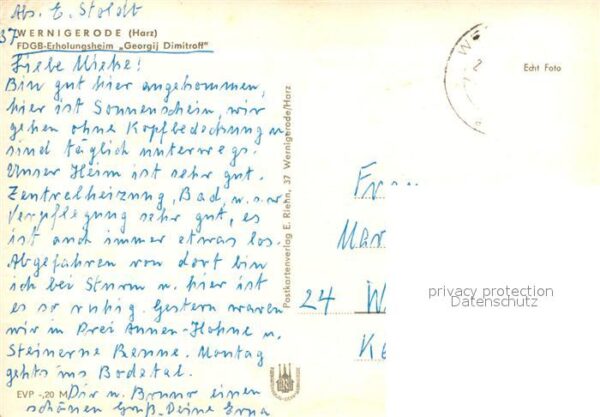 Abs. E. Stoldt
37
WERNIGERODE (Harz)
FDGB-Erholungsheim „Georgij Dimitroff"
Liebe Mieke!
Bin gut hier angekommen,
hier ist Sonnenschein, wir
gehen ohne Kopfbedeckung u.
sind täglich unterwegs.
Unser Heim ist sehr gut.
Zentralheizung, Bad, u.s.w
Verpflegung sehr gut, es
ist auch immer etwas los.
Abgefahren von dort bin
ich bei Sturm u. hier ist
es so ruhig. Gestern waren
wir in Drei Annen-Hohne u.
Steinerne Renne. Montag
gehts ins Bodetal.
EVP -,20 M
Dir u. Bruno einen
schönen Gruß. Deine Erna
Postkartenverlag E. Riehn, 37 Wernigerode/Harz
Echt Foto
Fr
Mar
24 W
privacy protection
Datenschutz